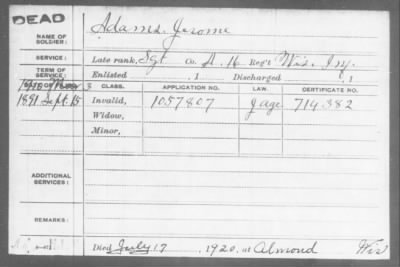 DEAD
NAME OF SOLDIER: Adams, Jerome
SERVICE: Late rank, Sgt. Co. A. 16 Reg't Wis. Inf.
TERM OF SERVICE: Enlisted , 1 Discharged , 1
CLASS. APPLICATION NO. LAW. CERTIFICATE NO.
1891 Sept. 15 Invalid, 1057807 J age. 714382
Widow,
Minor,
ADDITIONAL SERVICES:
REMARKS:
Died July 17 1920, at Almond Wis